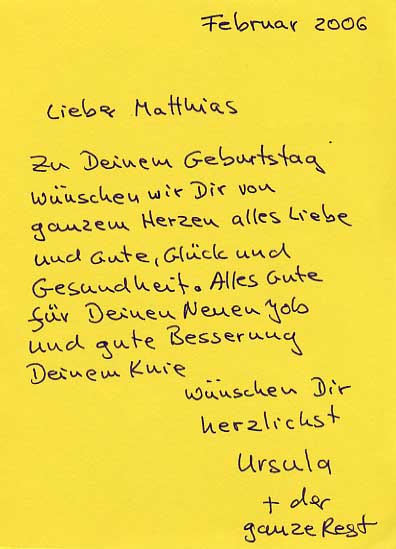 Februar 2006
Lieber Matthias
Zu Deinem Geburtstag
wünschen wir Dir von
ganzem Herzen alles Liebe
und Gute, Glück und
Gesundheit. Alles Gute
für Deinen Neuen Job
und gute Besserung
Deinem Knie
wünschen Dir
herzlichst
Ursula
+ der
ganze Rest